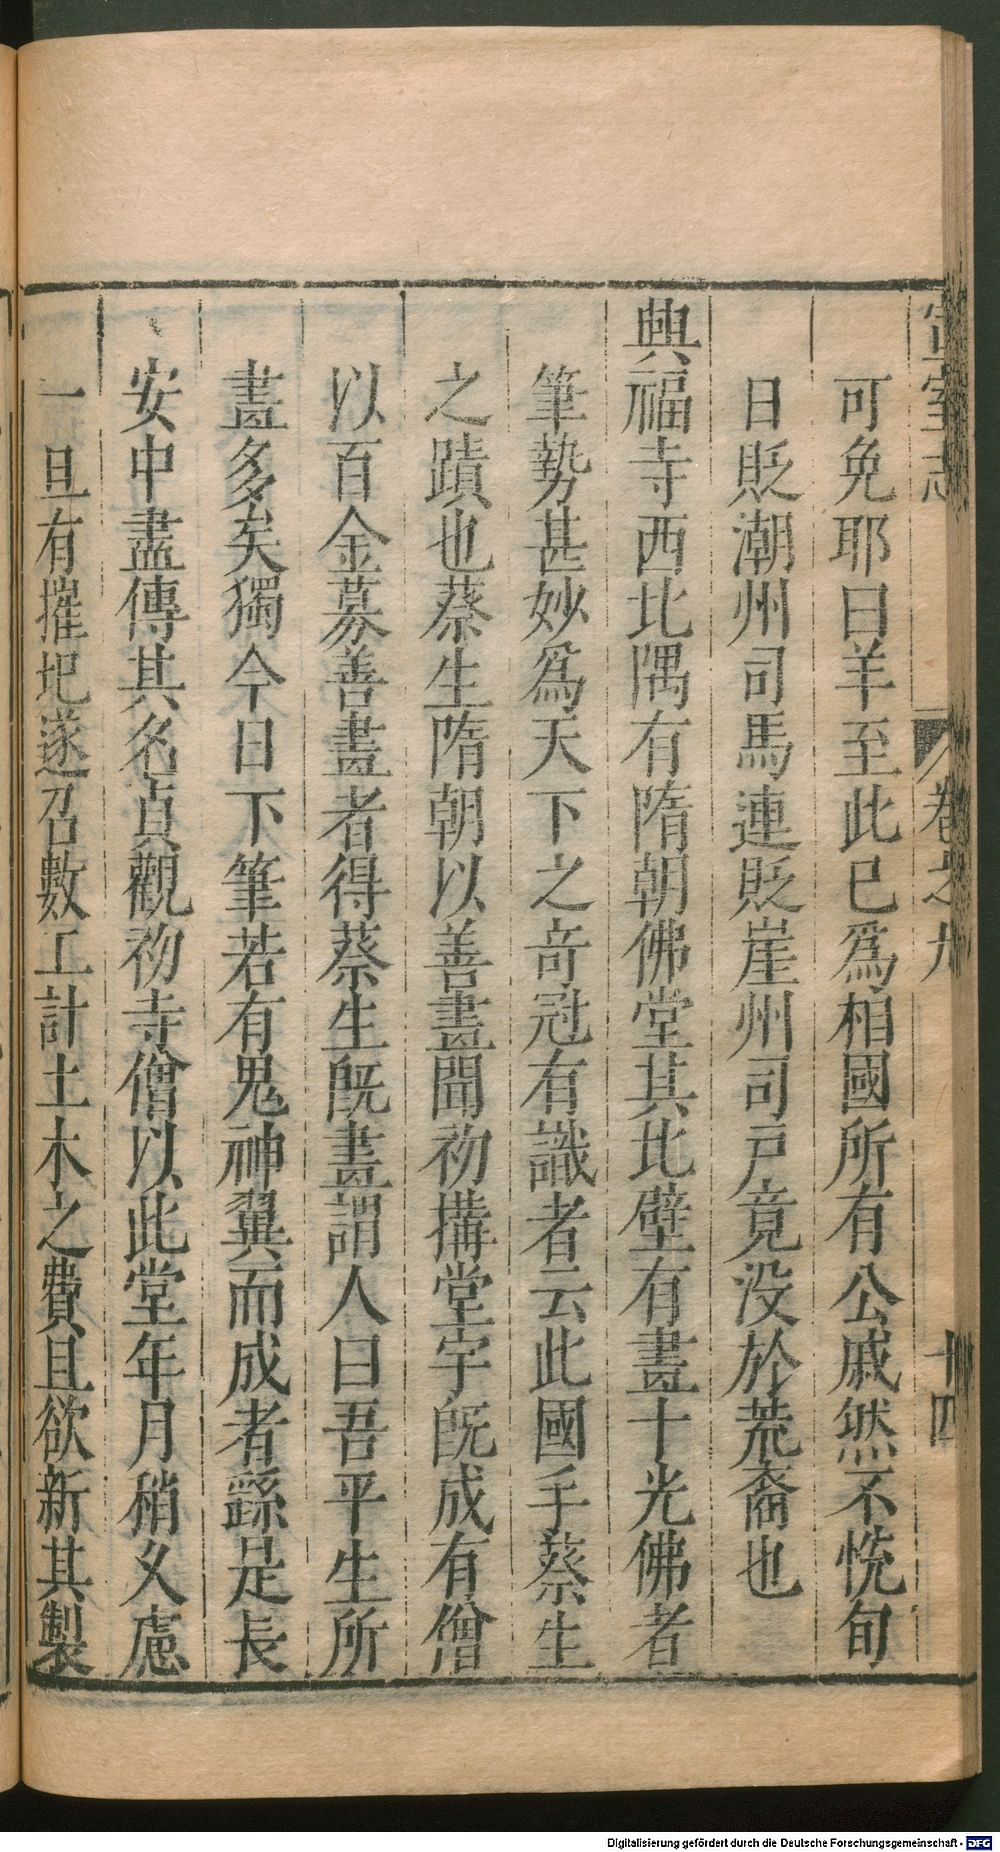 宣室志
卷之九
十四
可免耶曰羊至此已爲相國所有公戚然不悅旬
日貶潮州司馬連貶崖州司戸竟没於荒裔也
興福寺西北隅有隋朝佛堂其北壁有畫十光佛者
筆勢甚妙爲天下之竒冠有識者云此國手蔡生
之蹟也蔡生隋朝以善畫聞初搆堂宇旣成有僧
以百金募善畫者得蔡生旣畫謂人曰吾平生所
畫多矣獨今日下筆若有鬼神翼而成者繇是長
安中盡傳其名貞觀初寺僧以此堂年月稍久慮
一旦有摧圯遂召數工計土木之費且欲新其製
Digitalisierung gefördert durch die Deutsche Forschungsgemeinschaft - DFG